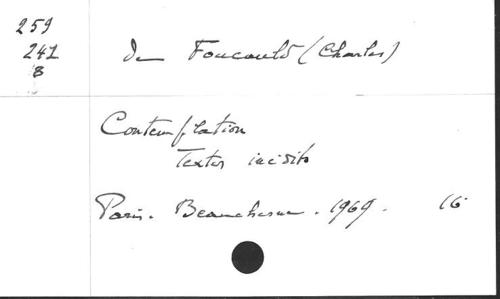 259
241
8
De Foucauld (Charles)
Contemplation
Textes inédits
Paris. Beauchesne. 1969. 16